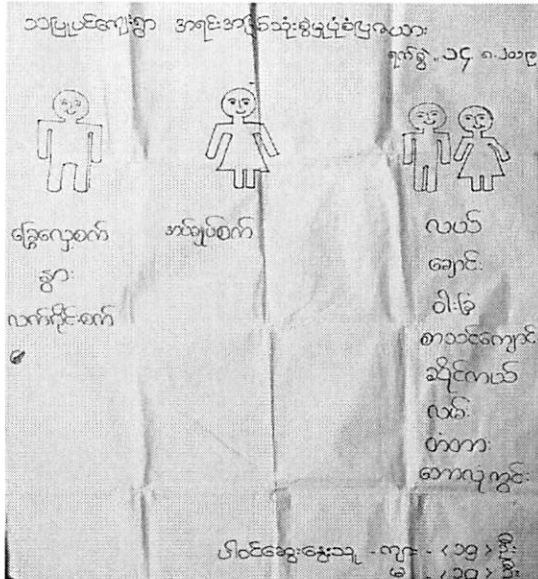 သပြုပင်ကျေးရွာ အရင်းအမြစ်သုံးစွဲမှုပုံစံပြဇယား
ရက်စွဲ ၁၄.၈.၂၀၁၉
ခြွေလှေ့စက်
နွား
လက်ကိုင်းစက်
အပ်ချုပ်စက်
လယ်
ချောင်း
ဝါးခြံ
စာသင်ကျောင်း
ဆိုင်ကယ်
လမ်း
တံတား
ဘောလုံးကွင်း
ပါဝင်ဆွေးနွေးသူ - ကျား - <၁၅> ဦး
မ - ဦး